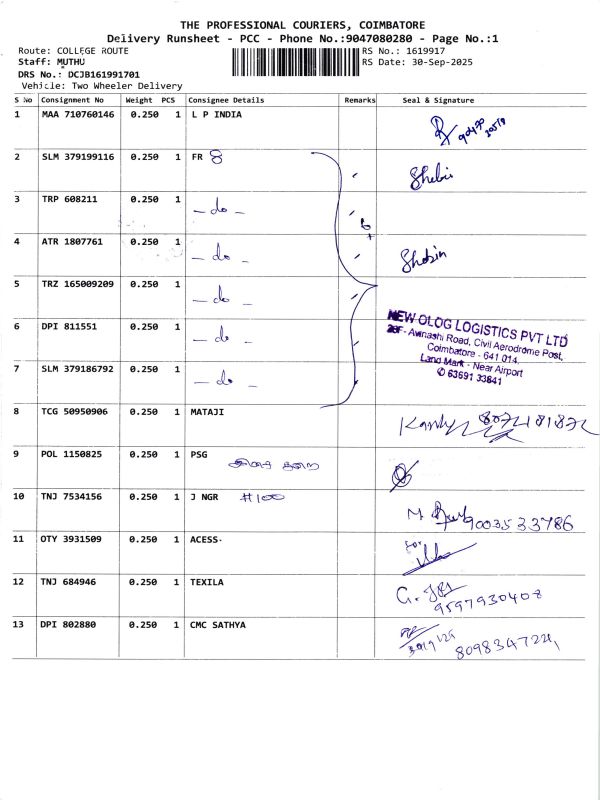 THE PROFESSIONAL COURIERS, COIMBATORE
Delivery Runsheet - PCC - Phone No.:9047080280 - Page No.:1
Route: COLLEGE ROUTE RS No.: 1619917
Staff: MUTHU RS Date: 30-Sep-2025
DRS No.: DCJB161991701
Vehicle: Two Wheeler Delivery
S No Consignment No Weight PCS Consignee Details Remarks Seal & Signature
1 MAA 710760146 0.250 1 L P INDIA
2 SLM 379199116 0.250 1 FR 8 Shebin
3 TRP 608211 0.250 1 - do -
4 ATR 1807761 0.250 1 - do - Shebin
5 TRZ 165009209 0.250 1 - do -
NEW OLOG LOGISTICS PVT LTD
28F - Avinashi Road, Civil Aerodrome Post,
Coimbatore - 641 014.
Land Mark - Near Airport
✆ 63691 33841
6 DPI 811551 0.250 1 - do -
7 SLM 379186792 0.250 1 - do -
8 TCG 50950906 0.250 1 MATAJI
9 POL 1150825 0.250 1 PSG
10 TNJ 7534156 0.250 1 J NGR #100 9003533786
11 OTY 3931509 0.250 1 ACESS- for
12 TNJ 684946 0.250 1 TEXILA 9597930408
13 DPI 802880 0.250 1 CMC SATHYA